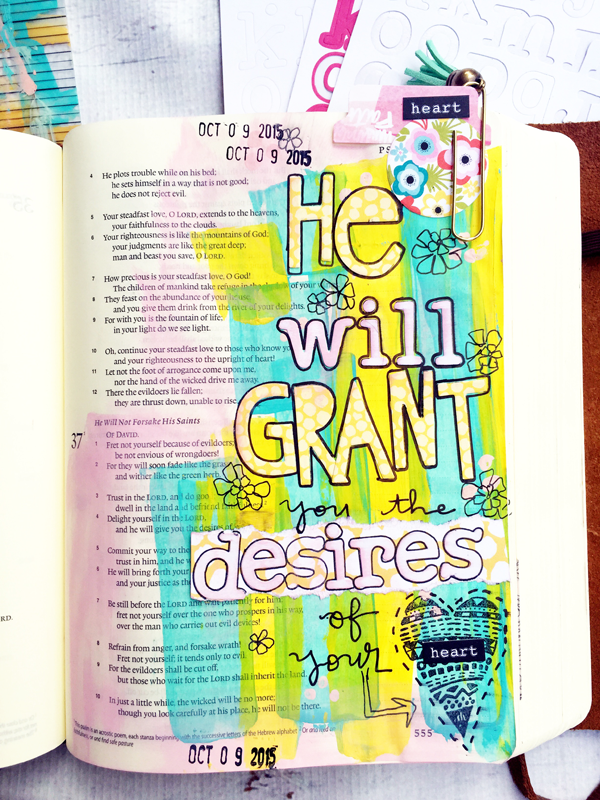 OCT 0 9 2015
OCT 0 9 2015
heart
PS
4 He plots trouble while on his bed;
he sets himself in a way that is not good;
he does not reject evil.
5 Your steadfast love, O LORD, extends to the heavens,
your faithfulness to the clouds.
6 Your righteousness is like the mountains of God;
your judgments are like the great deep;
man and beast you save, O LORD.
7 How precious is your steadfast love, O God!
The children of mankind take refuge in the of your
8 They feast on the abundance of your house,
and you give them drink from the river of your delights.
9 For with you is the fountain of life;
in your light do we see light.
10 Oh, continue your steadfast love to those who know yo
and your righteousness to the upright of heart!
11 Let not the foot of arrogance come upon me,
nor the hand of the wicked drive me away.
12 There the evildoers lie fallen;
they are thrust down, unable to rise.
He Will Not Forsake His Saints
37 OF DAVID.
1 Fret not yourself because of evildoers;
be not envious of wrongdoers!
2 For they will soon fade like the gra
and wither like the green herb.
3 Trust in the LORD, and do goo
dwell in the land and befriend
4 Delight yourself in the LORD,
and he will give you the desires of
5 Commit your way to the
trust in him, and he w
6 He will bring forth your
and your justice as the
7 Be still before the LORD and wait patiently for him;
fret not yourself over the one who prospers in his way,
over the man who carries out evil devices!
8 Refrain from anger, and forsake wrath!
Fret not yourself; it tends only to evil.
9 For the evildoers shall be cut off,
but those who wait for the LORD shall inherit the land.
10 In just a little while, the wicked will be no more;
though you look carefully at his place, he will not be there.
This psalm is an acrostic poem, each stanza beginning with the successive letters of the Hebrew alphabet Or and feed
or and find safe pasture
555
OCT 0 9 2015
He
will
GRANT
you the
desires
of
your
heart
RD.